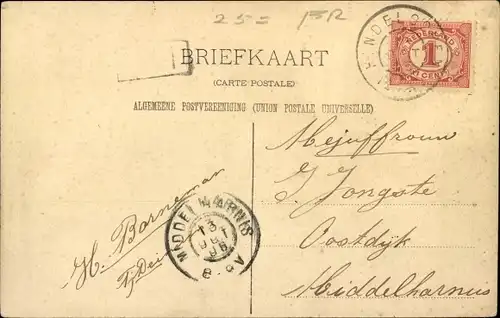 25= 
BRIEFKAART
(CARTE POSTALE)
ALGEMEENE POSTVEREENIGING (UNION POSTALE UNIVERSELLE)
NEDERLAND
1
CENT
Mejuffrouw
J. Jongste
Oostdijk
Middelharnis
H. Borneman
MIDDELHARNIS
13
8-9V